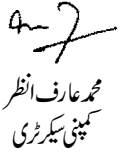 محمد عارف انظر
کمپنی سیکرٹری